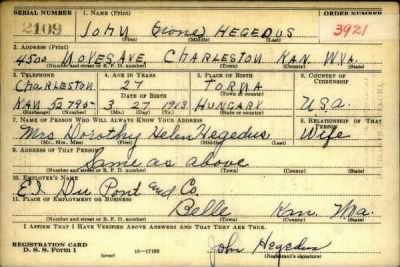 SERIAL NUMBER 1. NAME (Print) ORDER NUMBER
2109 JOHN (none) HEGEDUS 3921
(First) (Middle) (Last)
3. ADDRESS (Print)
4500 NOYES AVE, CHARLESTON KAN. W.VA.
(Number and street or R. F. D. number) (Town) (County) (State)
3. TELEPHONE 4. AGE IN YEARS 5. PLACE OF BIRTH 6. COUNTRY OF CITIZENSHIP
CHARLESTON 27 TORNA
DATE OF BIRTH (Town or county)
KAN 52795 3 27 1913 HUNGARY U.S.A.
(Exchange) (Number) (Mo.) (Day) (Yr.) (State or country)
7. NAME OF PERSON WHO WILL ALWAYS KNOW YOUR ADDRESS 8. RELATIONSHIP OF THAT PERSON
Mrs Dorothy Helen Hegedus Wife
(Mr., Mrs., Miss) (First) (Middle) (Last)
9. ADDRESS OF THAT PERSON
Same as above
(Number and street or R. F. D. number) (Town) (County) (State)
10. EMPLOYER'S NAME
E.I. Du Pont and Co.
11. PLACE OF EMPLOYMENT OR BUSINESS
Belle Kan. W.Va.
(Number and street or R. F. D. number) (Town) (County) (State)
I AFFIRM THAT I HAVE VERIFIED ABOVE ANSWERS AND THAT THEY ARE TRUE.
REGISTRATION CARD
D. S. S. Form 1 16—17105 John Hegedus
(Registrant's signature)